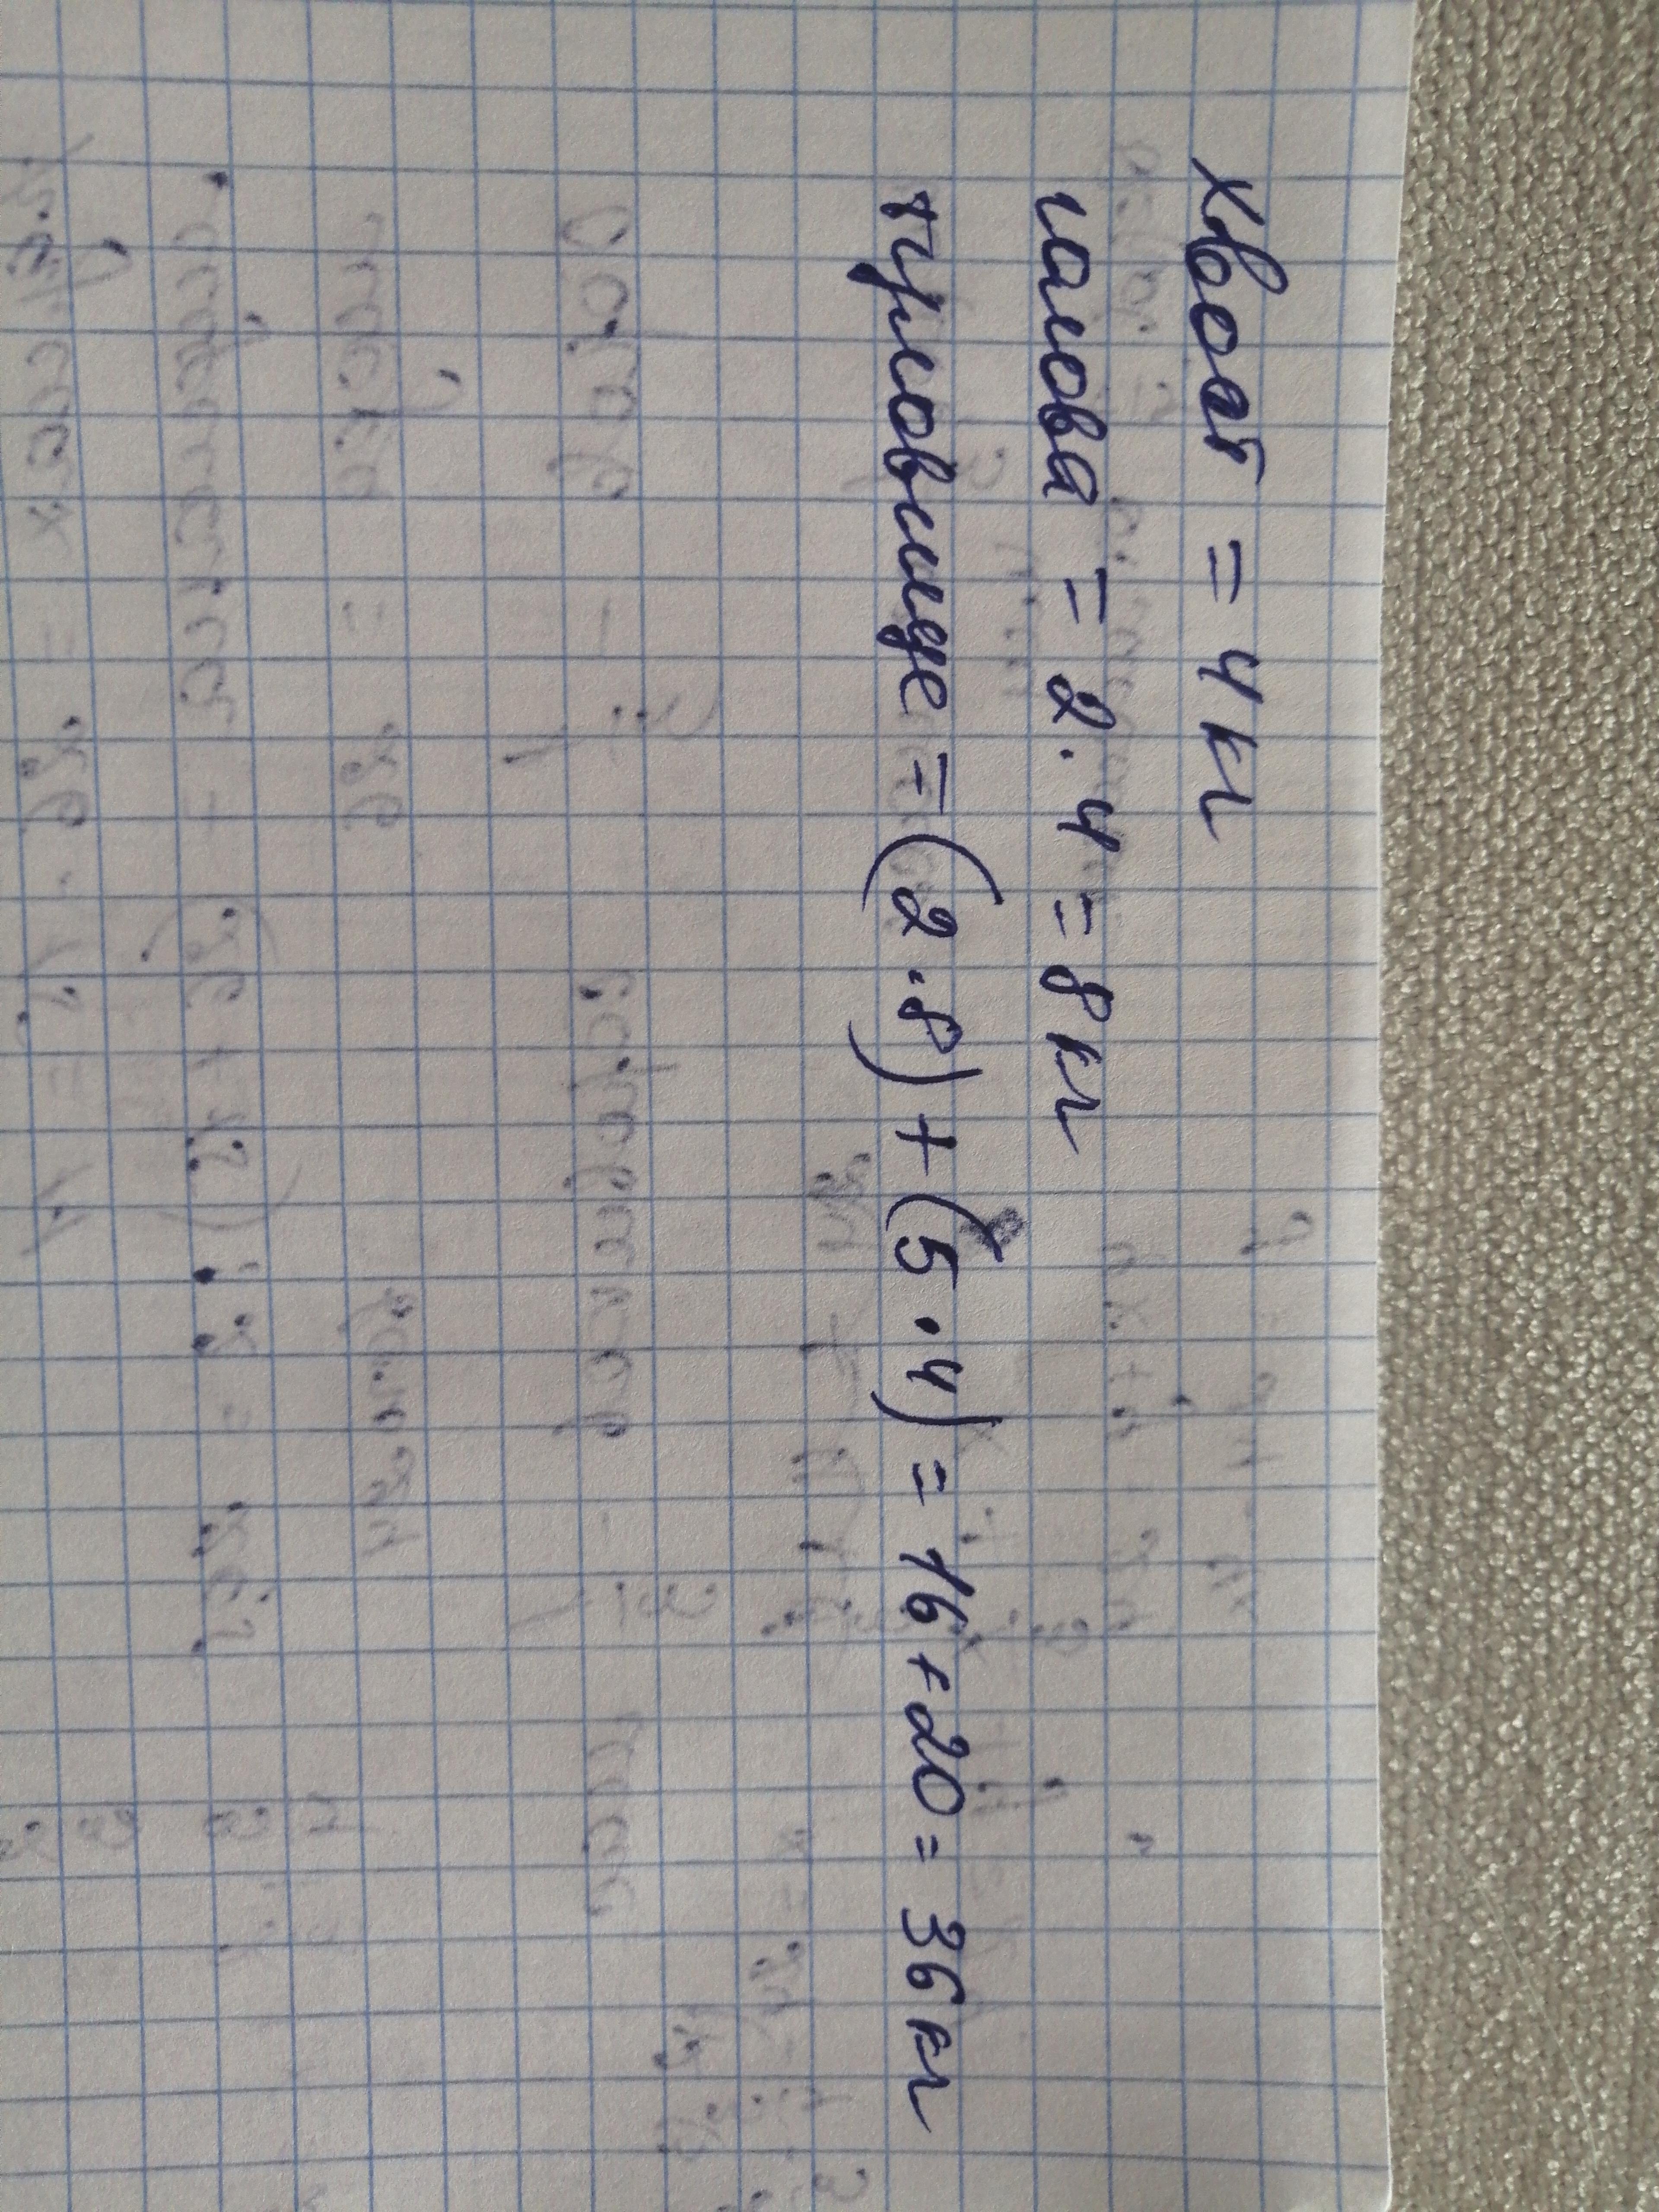 хвост = 4 кг
голова = 2 · 4 = 8 кг
туловище = (2 · 8) + (5 · 4) = 16 + 20 = 36 кг